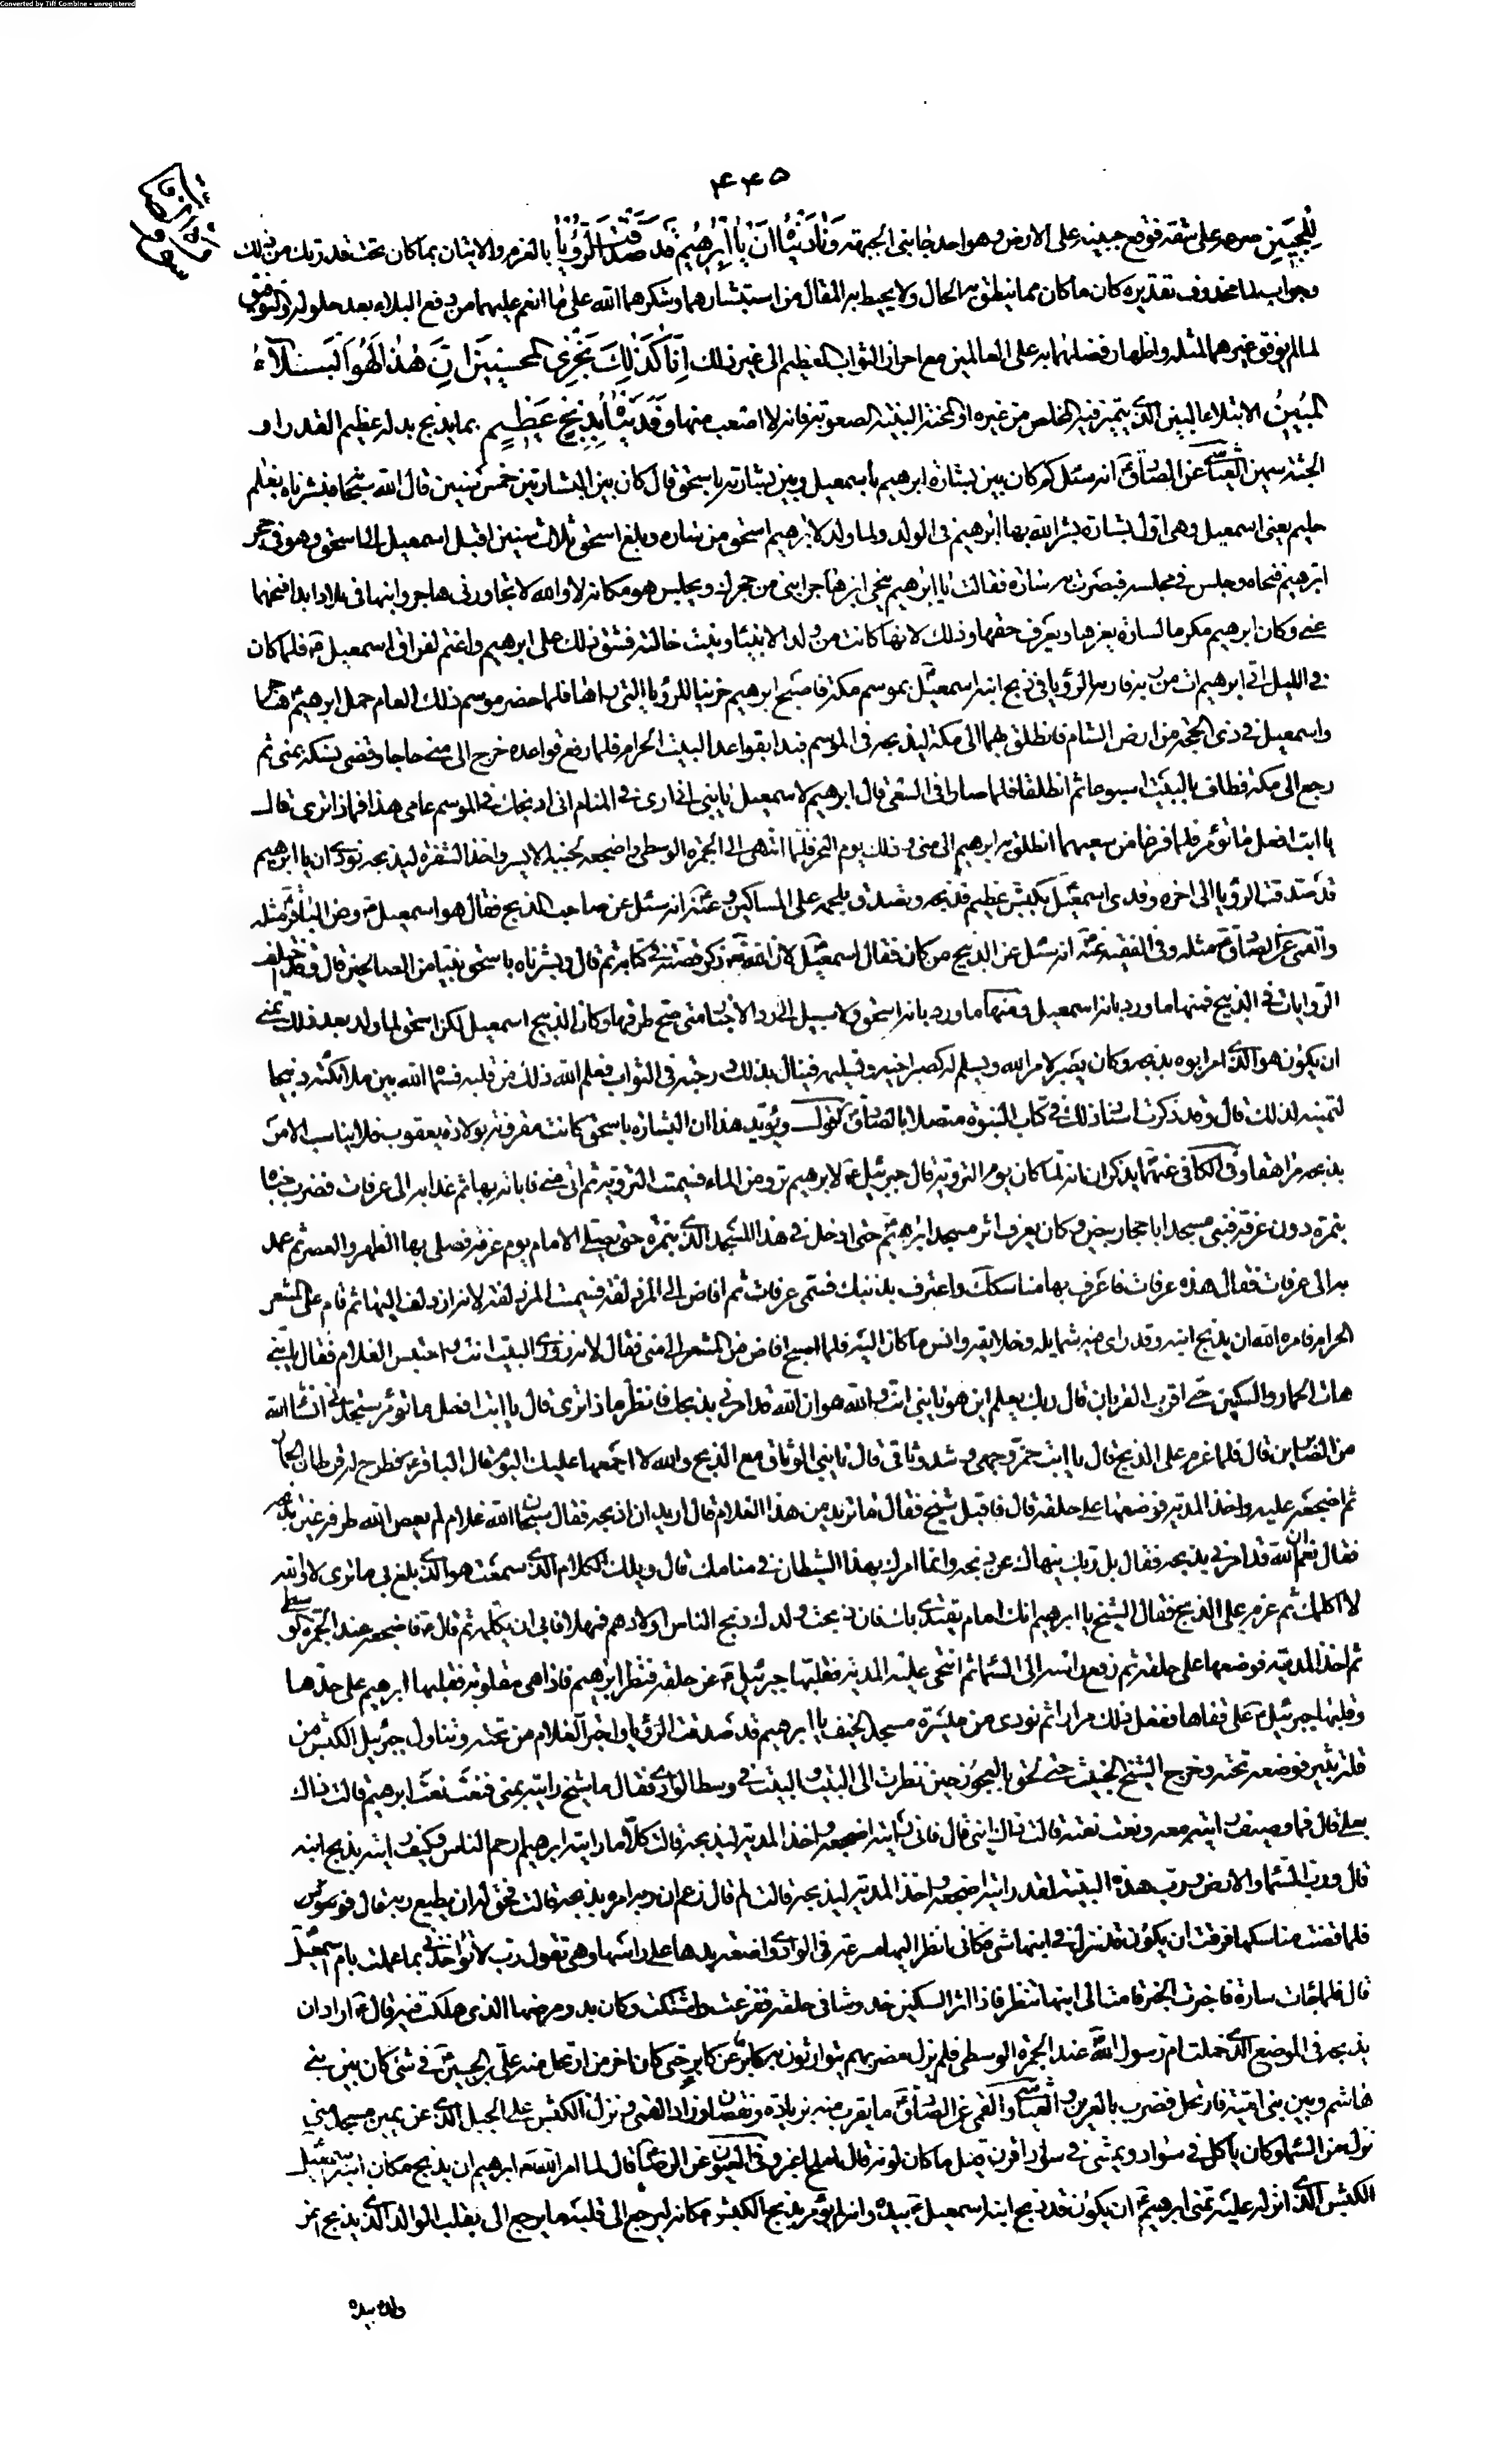 Converted by Tiff Combine - unregistered
۴۴۵
لِلْجَبِينِ صرعه على شقه فوقع جبينه على الارض وهو احد جانبى الجبهة وَنادَيْناهُ اَنْ يا اِبْرهِيمُ قَدْ صَدَّقْتَ الرُّؤْيا بالعزم والاتيان بما كان تحت قدرتك من ذلك
وجواب لما محذوف تقديره كان ما كان مما ينطق به الحال ولا يحيط به المقال من استبشارهما وشكرهما الله على ما انعم عليهما من دفع البلاء بعد حلوله والتوفيق
لما لم يوفق غيرهما لمثله واظهار فضلهما به على العالمين مع احراز الثواب العظيم الى غير ذلك اِنّا كَذلِكَ نَجْزِى المحسنِينَ اِنَّ هذا لَهُوَ الْبَلآءُ
المُبِينُ الابتلاء البين الذى يتميز فيه المخلص من غيره او المحنة البينة الصعوبة فانه لا اصعب منها وَفَدَيْناهُ بِذِبْحٍ عَظِيمٍ بما يذبح بدله عظيم القدر او
الجثة سمين العياشى عن الصادق انه سئل كم كان بين بشارة ابرهيم باسمعيل وبين بشارته باسحق قال كان بين البشارتين خمس سنين قال الله سبحانه فبشرناه بغلم
حليم يعنى اسمعيل وهى اول بشارة بشر الله بها ابرهيم فى الولد ولما ولد لابرهيم اسحق من ساره وبلغ اسحق ثلاث سنين اقبل اسمعيل الى اسحق وهو فى حجر
ابرهيم فنحاه وجلس فى مجلسه فبصرت به ساره فقالت يا ابرهيم ينحى ابن هاجر ابنى من حجرك ويجلس هو مكانه لا والله لا تجاورنى هاجر وابنها فى بلاد ابدا فنحهما
عنى وكان ابرهيم مكرما لسارة يعزها ويعرف حقها وذلك لانها كانت من ولد الانبياء وبنت خالته فشق ذلك على ابرهيم واغتم لفراق اسمعيل فلما كان
فى الليل اتى ابرهيم ات من ربه فاراه الرؤيا فى ذبح ابنه اسمعيل بموسم مكة فاصبح ابرهيم حزينا للرؤيا التى راها فلما حضر موسم ذلك العام حمل ابرهيم هاجر
واسمعيل فى ذى الحجة من ارض الشام فانطلق بهما الى مكة ليذبحه فى الموسم فبدا بقواعد البيت الحرام فلما رفع قواعده خرج الى منى حاجا وقضى نسكه بمنى ثم
رجع الى مكة فطاف بالبيت اسبوعا ثم انطلقا فلما صارا فى السعى قال ابرهيم لاسمعيل يا بنى انى ارى فى المنام انى اذبحك فى الموسم عامى هذا فماذا ترى قال
يا ابت افعل ما تؤمر فلما فرغا من سعيهما انطلق به ابرهيم الى منى وذلك يوم النحر فلما انتهى الى الجمرة الوسطى واضجعه لجنبه الايسر واخذ الشفرة ليذبحه نودى ان يا ابرهيم
قد صدقت الرؤيا الى اخره وفدى اسمعيل بكبش عظيم فذبحه وتصدق بلحمه على المساكين وعنه انه سئل عن صاحب الذبح فقال هو اسمعيل وعن الباقر مثله
والقمى عن الصادق مثله وفى الفقيه عنه انه سئل عن الذبيح من كان فقال اسمعيل لان الله ذكر قصته فى كتابه ثم قال وبشرناه باسحق نبيا من الصالحين قال وقد اختلف
الروايات فى الذبيح فمنها ما ورد بانه اسمعيل ومنها ما ورد بانه اسحق ولا سبيل الى رد الاخبار متى صح طرقها وكان الذبيح اسمعيل لكن اسحق لما ولد بعد ذلك تمنى
ان يكون هو الذى امر ابوه بذبحه وكان يصبر لامر الله ويسلم له كصبر اخيه وتسليمه فينال بذلك درجته فى الثواب فعلم الله ذلك من قلبه فسماه الله بين ملائكته ذبيحا
لتمنيه لذلك قال وقد ذكرت اسناد ذلك فى كتاب النبوة متصلا بالصادق اقول ويؤيد هذا ان البشارة باسحق كانت مقرونة بولادة يعقوب فلا يناسب الامر
بذبحه مراهقا وفى الكافى عنهما يذكران انه لما كان يوم التروية قال جبرئيل لابرهيم ترو من الماء فسميت التروية ثم اتى منى فاباته بها ثم غدا به الى عرفات فضرب خباه
بنمرة دون عرفة فبنى مسجدا باحجار بيض وكان يعرف اثر مسجد ابرهيم حتى ادخل فى هذا المسجد الذى بنمرة حيث يصلى الامام يوم عرفة فصلى بها الظهر والعصر ثم عمد
به الى عرفات فقال هذه عرفات فاعرف بها مناسكك واعترف بذنبك فسمى عرفات ثم افاض الى المزدلفة فسميت المزدلفة لانه ازدلف اليها ثم قام على المشعر
الحرام فامره الله ان يذبح ابنه وقد راى فيه شمايله وخلايقه وانس ما كان اليه فلما اصبح افاض من المشعر الى منى فقال لامه زورى البيت انت واحتبس الغلام فقال يا بنى
هات الحمار والسكين حتى اقرب القربان قال ربك يعلم اين هو يا بنى انت والله هو ان الله قد امرنى بذبحك فانظر ماذا ترى قال يا ابت افعل ما تؤمر ستجدنى ان شاء الله
من الصابرين قال فلما عزم على الذبح قال يا ابت خمر وجهى وشد وثاقى قال يا بنى الوثاق مع الذبح والله لا اجمعهما عليك اليوم قال الباقر فطرح له قرطان الحمار
ثم اضجعه عليه واخذ المدية فوضعها على حلقه قال فاقبل شيخ فقال ما تريد من هذا الغلام قال اريد ان اذبحه فقال سبحان الله غلام لم يعص الله طرفة عين تذبحه
فقال نعم ان الله قد امرنى بذبحه فقال بل ربك ينهاك عن ذبحه وانما امرك بهذا الشيطان فى منامك قال ويلك الكلام الذى سمعت هو الذى بلغ بى ما ترى لا والله
لا اكلمك ثم عزم على الذبح فقال الشيخ يا ابرهيم انك امام يقتدى بك فان ذبحت ولدك ذبح الناس اولادهم فمهلا فابى ان يكلمه ثم قال فاضجعه عند الجمرة الوسطى
ثم اخذ المدية فوضعها على حلقه ثم رفع راسه الى السماء ثم انتحى عليه المدية فقلبها جبرئيل عن حلقه فنظر ابرهيم فاذا هى مقلوبة فقلبها ابرهيم على حدها
وقلبها جبرئيل على قفاها ففعل ذلك مرارا ثم نودى من ميسرة مسجد الخيف يا ابرهيم قد صدقت الرؤيا واجتر الغلام من تحته وتناول جبرئيل الكبش من
قلة ثبير فوضعه تحته وخرج الشيخ الخبيث حتى لحق بالعجوز حين نظرت الى البيت والبيت فى وسط الوادى فقال ما شيخ رايته بمنى فنعت نعت ابرهيم قالت ذاك
بعلى قال فما وصيف رايته معه ونعت نعته قالت ذاك ابنى قال فانى رايته اضجعه واخذ المدية ليذبحه قالت كلا ما رايت ابرهيم ارحم الناس وكيف رايته يذبح ابنه
قال ورب السماء والارض ورب هذه البنية لقد رايته اضجعه واخذ المدية ليذبحه قالت لم قال زعم ان ربه امره بذبحه قالت فحق له ان يطيع ربه قال
فلما قضت مناسكها فرقت ان يكون قد نزل فى ابنها شئ فكانى انظر اليها مسرعة فى الوادى واضعة يدها على راسها وهى تقول رب لا تؤاخذنى بما عملت بام اسمعيل
قال فلما جاءت سارة فاخبرت الخبر قامت الى ابنها تنظر فاذا اثر السكين خدوشا فى حلقه ففزعت واشتكت وكان بدو مرضها الذى هلكت فيه قال اراد ان
يذبحه فى الموضع الذى حملت ام رسول الله عند الجمرة الوسطى فلم يزل مضربهم يتوارثونه كابر عن كابر حتى كان اخر من ارتحل منه على بن الحسين فى شئ كان بين بنى
هاشم وبين بنى امية فارتحل فضرب بالعرين والعياشى والقمى عن الصادق ما يقرب منه بزيادة ونقصان وزاد القمى ونزل الكبش على الجبل الذى عن يمين مسجد منى
نزل من السماء وكان ياكل فى سواد ويمشى فى سواد اقرن قيل ما كان لونه قال املح اغبر وفى العيون عن الرضا قال لما امر الله ابرهيم ان يذبح مكان ابنه اسمعيل
الكبش الذى انزله عليه تمنى ابرهيم ان يكون قد ذبح ابنه اسمعيل بيده وانه لم يؤمر بذبح الكبش مكانه ليرجع الى قلبه ما يرجع الى قلب الوالد الذى يذبح اعز
ولده بيده